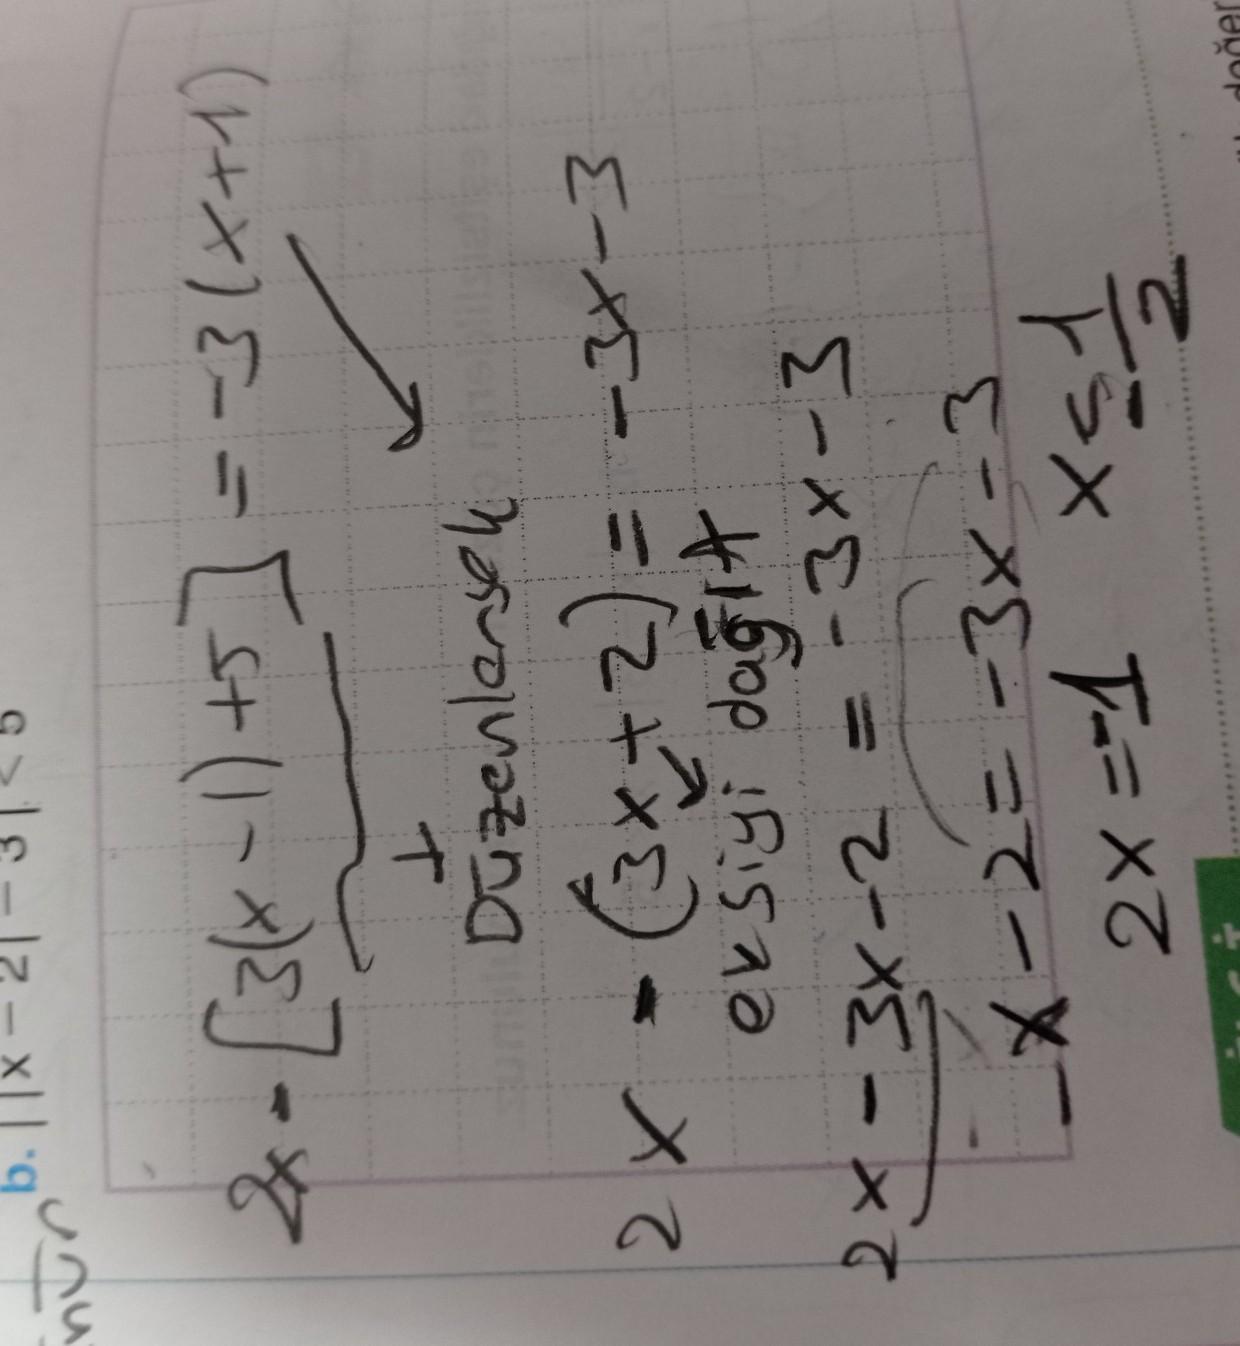 b. ||x-2|-3|<5
2x-[3(x-1)+5]=-3(x+1)
Düzenlersek
2x-(3x+2)=-3x-3
eksiyi dağıt
2x-3x-2=-3x-3
-x-2=-3x-3
2x=-1 x=-1/2